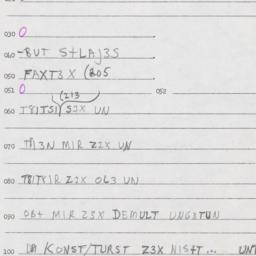 030 0
040 -BUT S+LAJ3S
050 FAXT3X (205
051 0 052
(213
060 T8ITSI S3X UN
070 T8I3N MIR Z2X UN
080 T8ITKIR Z2X OL3 UN
090 OB+ MIR Z3X DEMULT UNG3TUN
100 DA KONST/TURST Z3X NIS+T... UNT